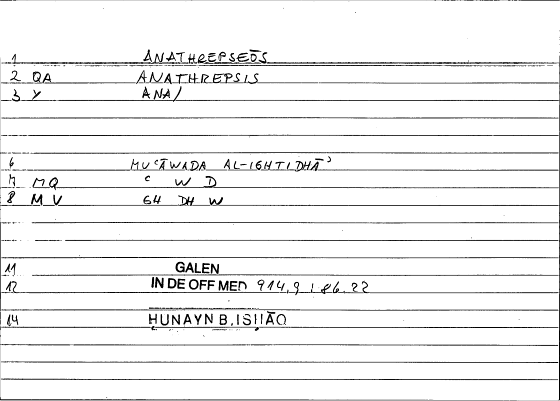 1 ANATHREPSEŌS
2 QA ANATHREPSIS
3 Y ANA/
6 MUʿĀWADA AL-IGHTIDHĀʾ
7 MQ ʿ W D
8 MV GH DH W
11 GALEN
12 IN DE OFF MED 914,9 / 86.22
14 ḤUNAYN B. ISḤĀQ